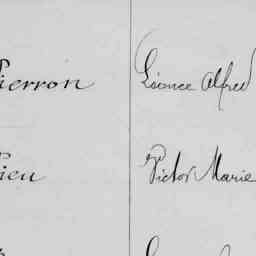 Pierron Léonce Alfred
Pieu Victor Marie